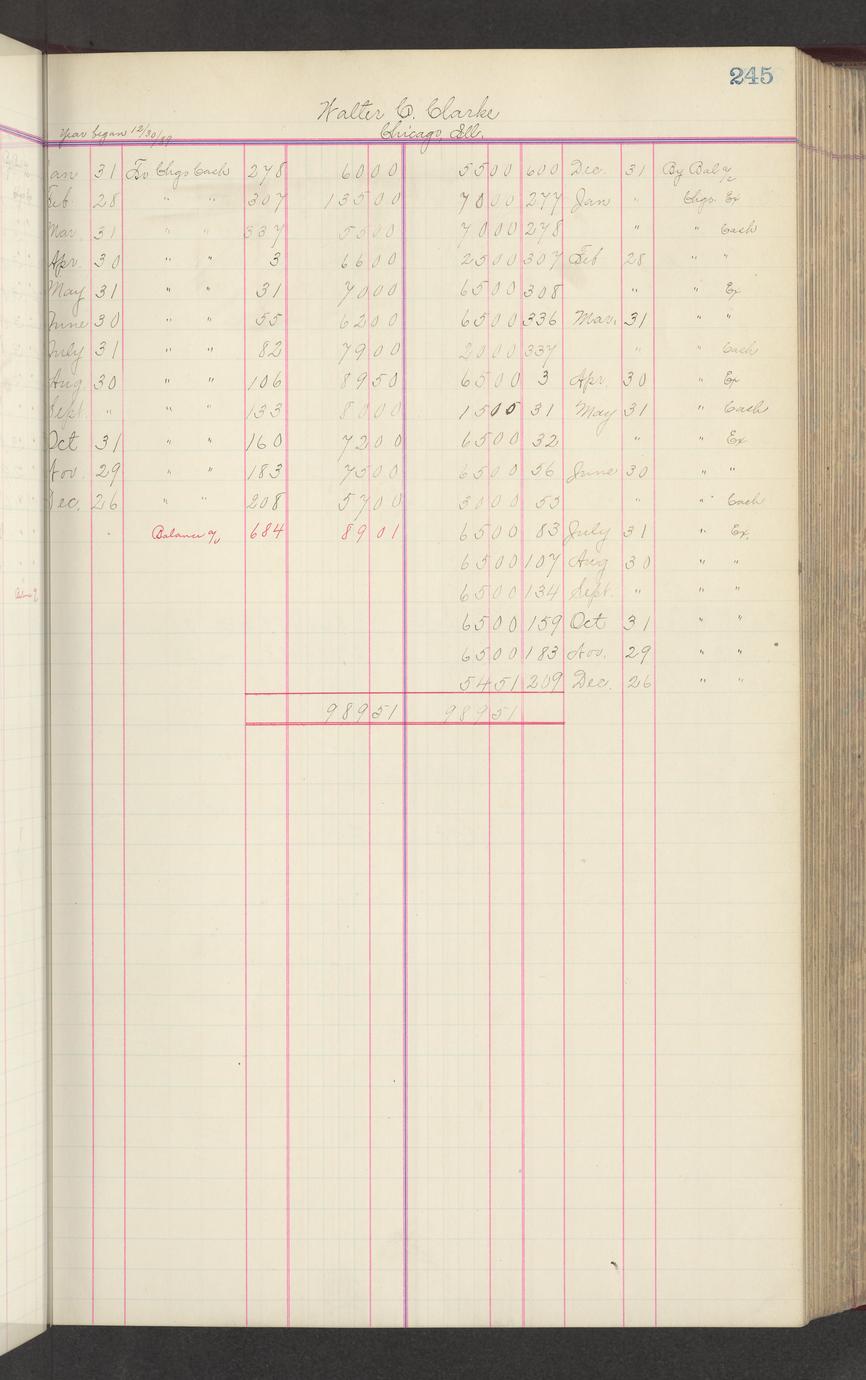 245
Walter C. Clarke
Year began 12/30/89 Chicago, Ill.
Jan 31 To Chgo Cash 278 60 00 55 00 600 Dec. 31 By Bal a/c
Feb 28 " " 307 135 00 70 00 277 Jan " Chgo Ex
Mar 31 " " 337 55 00 70 00 278 " " Cash
Apr. 30 " " 3 66 00 25 00 307 Feb 28 " "
May 31 " " 31 70 00 65 00 308 " " Ex
June 30 " " 55 62 00 65 00 336 Mar. 31 " "
July 31 " " 82 79 00 20 00 337 " " Cash
Aug 30 " " 106 89 50 65 00 3 Apr. 30 " Ex
Sept. " " " 133 80 00 15 00 31 May 31 " Cash
Oct 31 " " 160 72 00 65 00 32 " " Ex
Nov. 29 " " 183 75 00 65 00 56 June 30 " "
Dec. 26 " " 208 57 00 30 00 55 " " Cash
Balance a/c 684 89 01 65 00 83 July 31 " Ex.
65 00 107 Aug 30 " "
65 00 134 Sept. " " "
65 00 159 Oct 31 " "
65 00 183 Nov. 29 " "
54 51 209 Dec. 26 " "
989 51 989 51